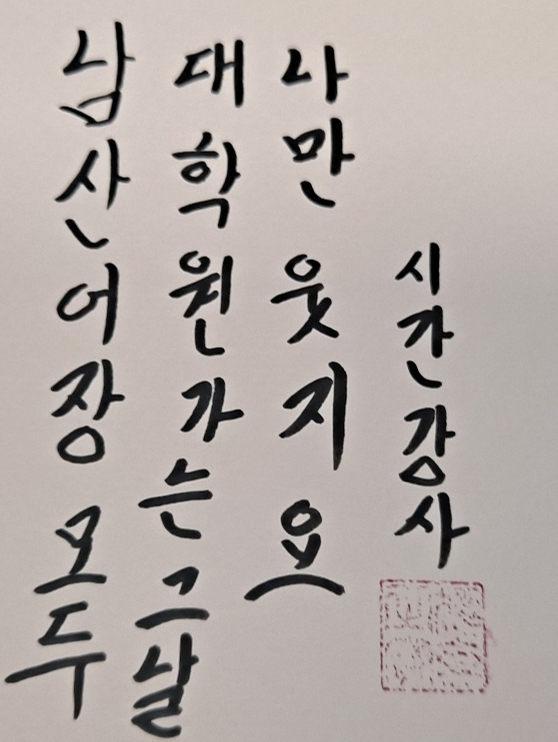 남산어장 모두
대학원가는 그날
나만 웃지요
시간강사